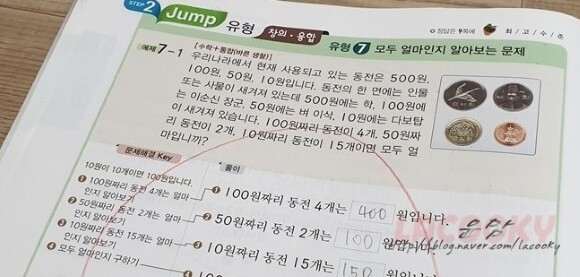 STEP 2 Jump 유형 창의·융합
정답은 9쪽에 최고수준
유형 7 모두 얼마인지 알아보는 문제
예제 7-1 [수학+통합(바른 생활)]
우리나라에서 현재 사용되고 있는 동전은 500원,
100원, 50원, 10원입니다. 동전의 한 면에는 인물
또는 사물이 새겨져 있는데 500원에는 학, 100원에
는 이순신 장군, 50원에는 벼 이삭, 10원에는 다보탑
이 새겨져 있습니다. 100원짜리 동전이 4개, 50원짜
리 동전이 2개, 10원짜리 동전이 15개이면 모두 얼
마입니까?
문제해결 Key
10원이 10개이면 100원입니다.
1 100원짜리 동전 4개는 얼마
인지 알아보기
2 50원짜리 동전 2개는 얼마
인지 알아보기
3 10원짜리 동전 15개는 얼마
인지 알아보기
4 모두 얼마인지 구하기
풀이
1 100원짜리 동전 4개는 400 원입니다
2 50원짜리 동전 2개는 100 원입니다
3 10원짜리 동전 15개는 150 원
4
LACOOKY
운담
//blog.naver.com/lacooky